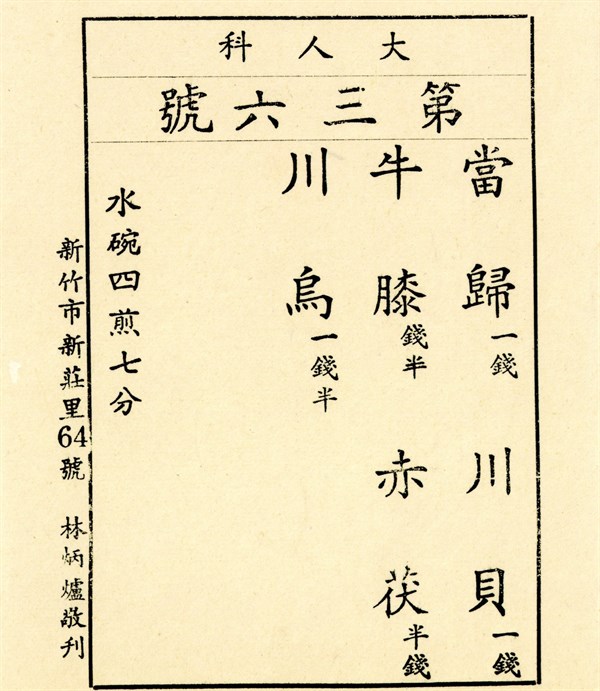 大人科
第三六號
當歸一錢 川貝一錢
牛膝錢半 赤茯半錢
川烏一錢半
水碗四煎七分
新竹市新莊里64號 林炳爐敬刊